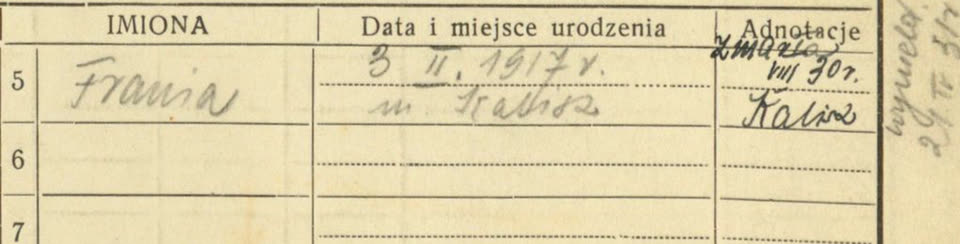 IMIONA Data i miejsce urodzenia Adnotacje
5 Frania 3 II. 1917 r. zmarła
VIII 30 r.
m. Kalisz Kalisz
6
7
24 IV 31 r